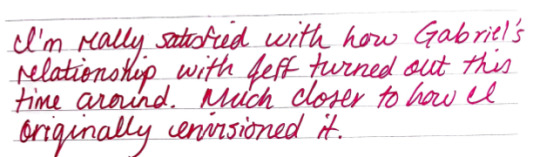 I'm really satisfied with how Gabriel's
relationship with Jeff turned out this
time around. Much closer to how I
originally envisioned it.